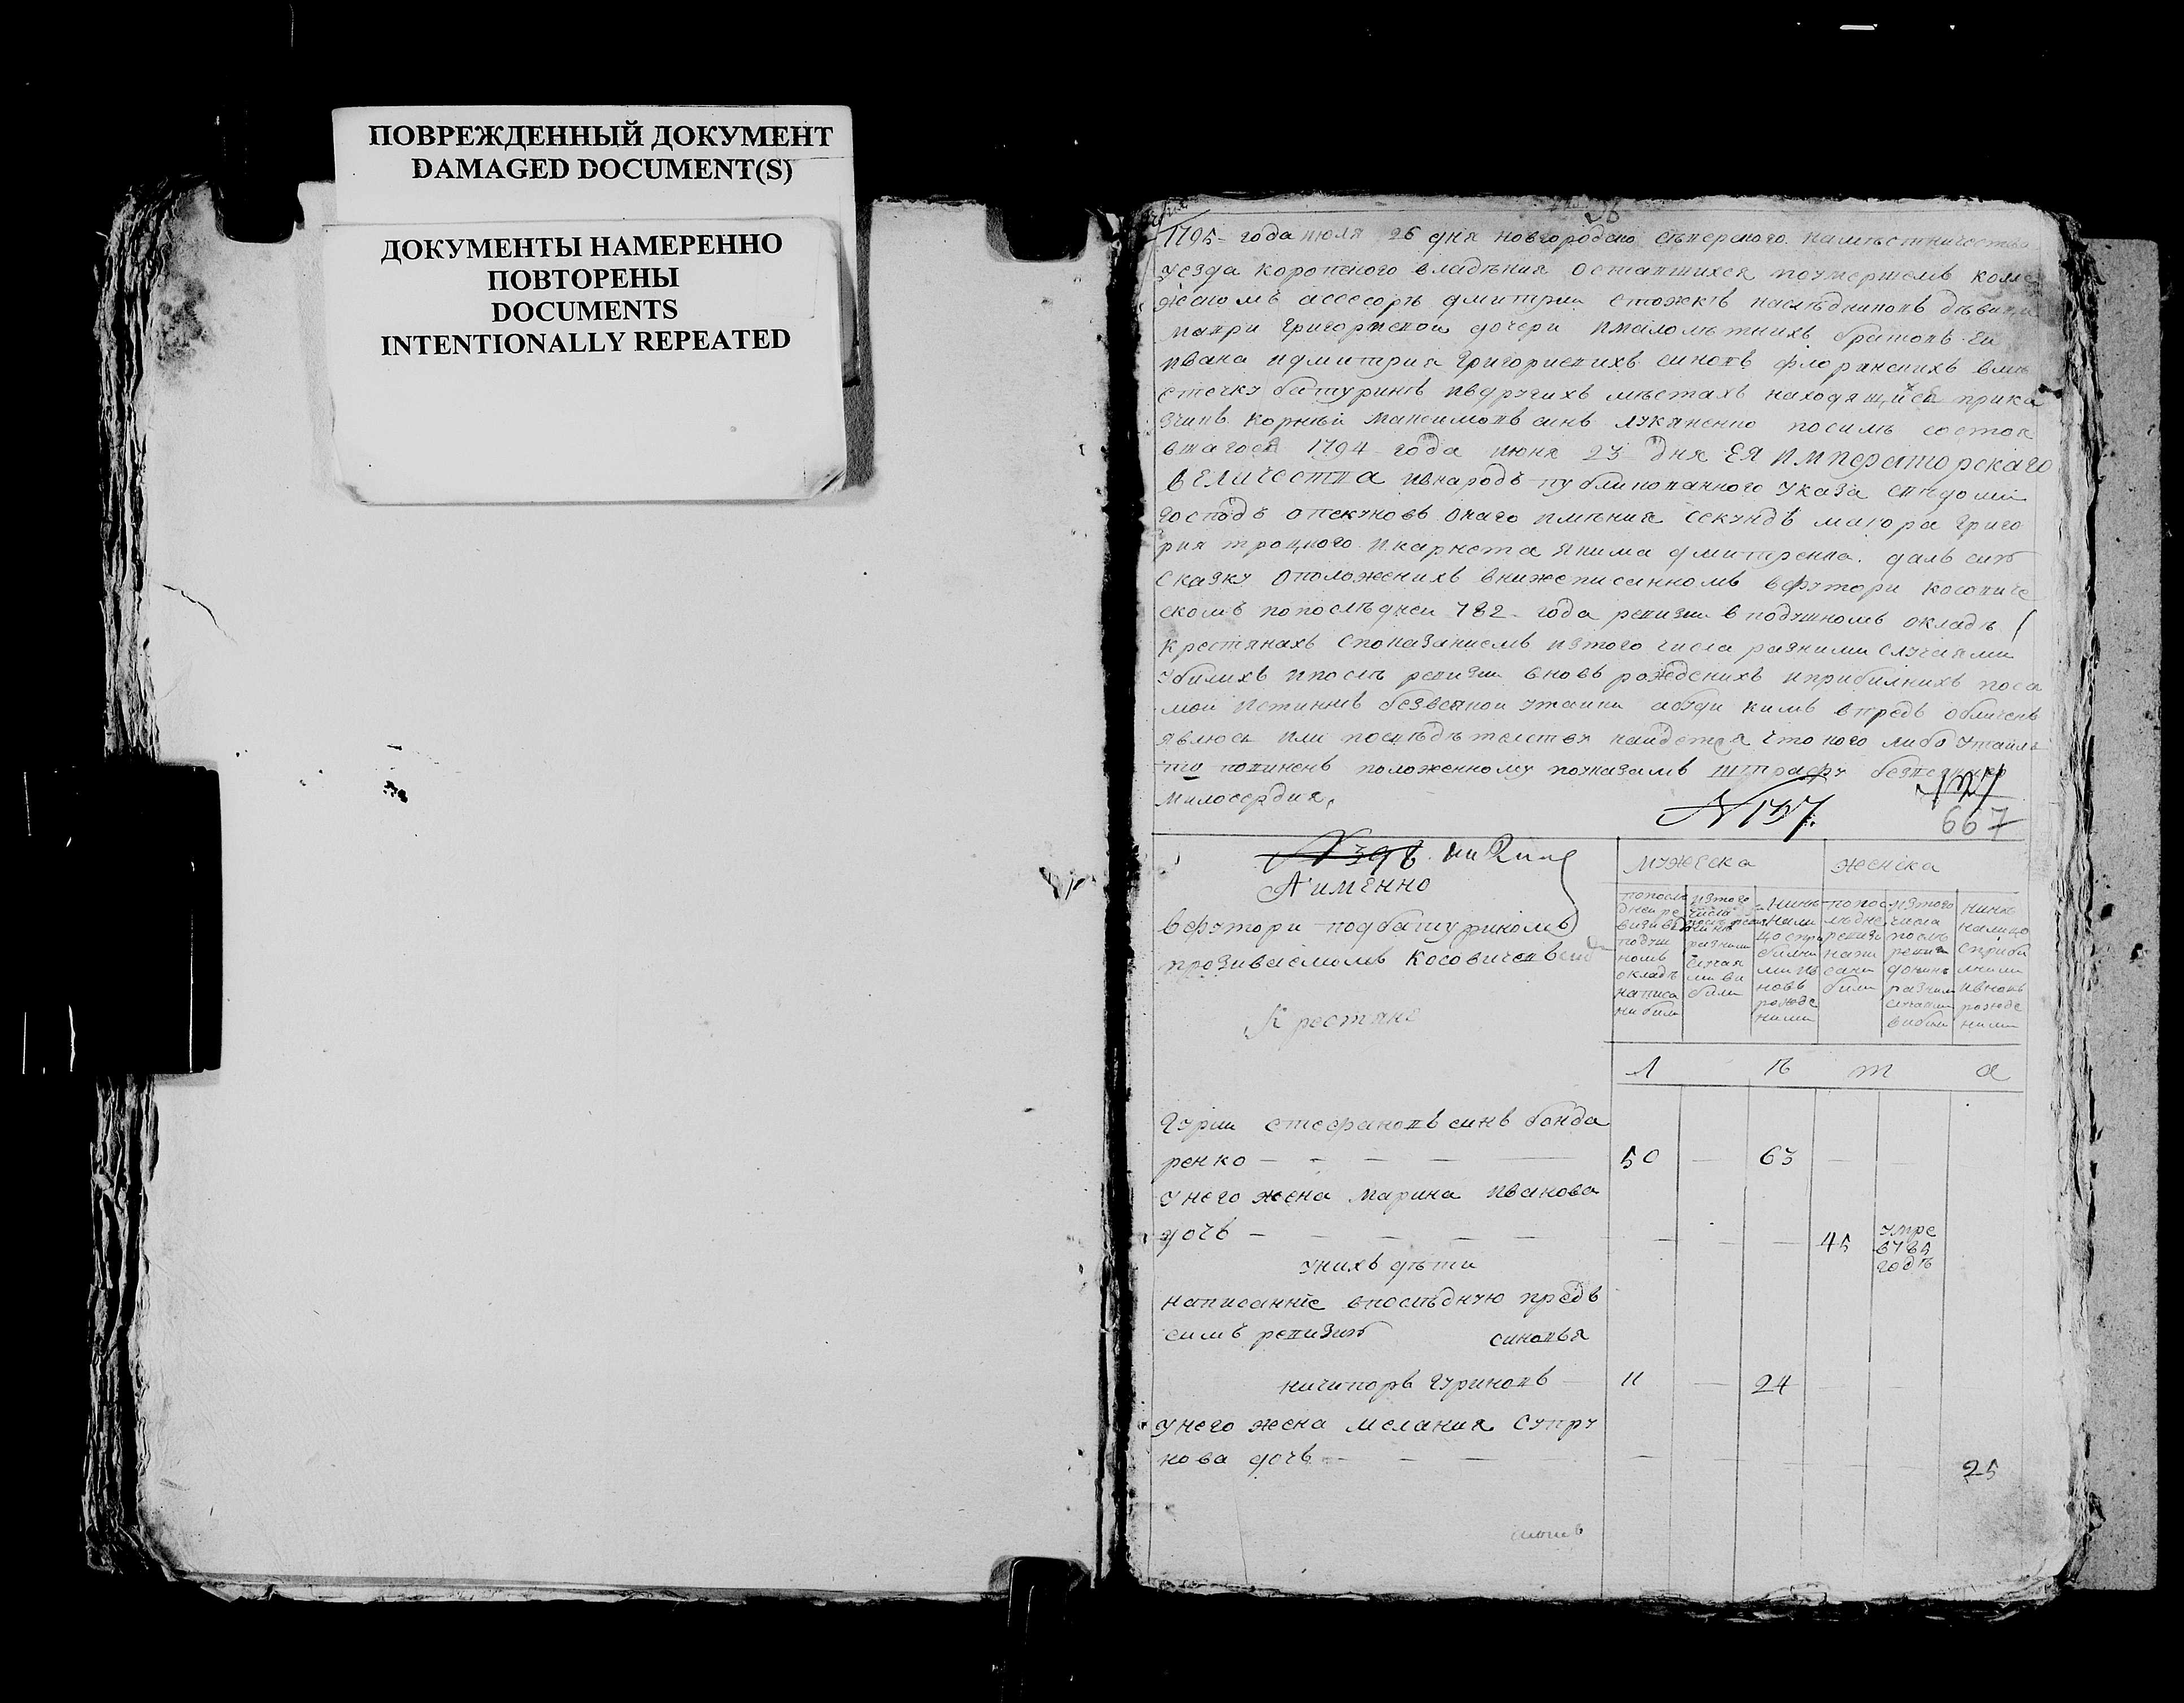 ПОВРЕЖДЕННЫЙ ДОКУМЕНТ
DAMAGED DOCUMENT(S)
ДОКУМЕНТЫ НАМЕРЕННО
ПОВТОРЕНЫ
DOCUMENTS
INTENTIONALLY REPEATED
1795 года июля 26 дня новгородско сѣверского намѣстничества
уезда коропского владѣния оставшихся поумершемъ колле
жскомъ ассесорѣ дмитрии стожкѣ наслѣдниковъ дѣвици
марии григориевой дочери ималолѣтнихъ братовъ ея
ивана идмитрия григориевихъ синовъ флоринскихъ вмѣ
стечку батуринѣ ивдругихъ мѣстахъ находящийся прика
зчикъ корнѣй максимовъ синъ лукяненко посилѣ состоя
вшагося 1794 года июня 23 дня ЕЯ ИМПЕРаторскаго
ВЕЛИЧЕСТВА ивнародъ публикованного указа сведома
господъ опекуновъ онаго имѣния секундъ маиора григо
рия троцкого икарнета якима дмитренка. далъ сию
сказку оположенихъ внижеписанномъ вфутори косовиче
скомъ попослѣдней 782 года ревизии вподушномъ окладѣ
крестянахъ споказаниемъ изтого числа разними случаями
убилихъ ипослѣ ревизии вновь рожденихъ иприбилихъ поса
мой истиннѣ безвсякой утайки абуди кимъ впредь обличенъ
явлюсь или посвѣдѣтелству найдется что кого либо утаилъ
то повиненъ положенному поуказамъ штрафу безвсякого
милосердия.
N 137
127
667
N 398
А именно
вфутори подбатуриномъ
прозиваемомъ косовичевъ
Крестяне
мужеска
женска
попослѣ
дней ре
визии в
подуш
номъ
окладѣ
написа
ни били
изтого
числа
разними
случая
ми ви
били
нинѣ
нали
цо спри
билими
ивновь
рожде
ними
попос
лѣдне
ревизи
напи
сани
били
изтого
числа
послѣ
ревизии
донинѣ
разними
случаями
вибили
нинѣ
налицо
сприби
лими
ивновь
рожде
ними
Л ѣ т а
Гурии стефановъ синъ бонда
ренко — 50 — 63 — —
унего жена марина иванова
дочь — — — — 45 умре
в785
годѣ
унихъ дѣти
написанние впослѣднюю предъ
симъ ревизию синовья
ничипоръ гуриновъ — 11 — 24 — —
унего жена мелания супру
нова дочь — — — — — — 25